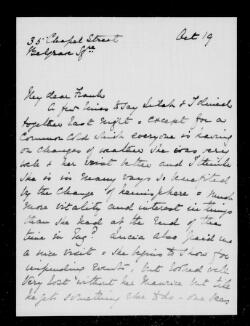 35 Chapel Street Oct 19
Belgrave Sqre
My dear Frank
A few lines to say & I dined
together last night - except for a
Common Cold which everyone is having
on changes of weather she was very
well & her better and I think
she is in many ways benefited
by the change of hemisphere & much
more vitality and interest in things
than she had at the end of the
time in Lucia also paid me
a nice visit & she begins to show for
impending event, but looked well
Very lost without her Maurice but till
he gets something else to do - one